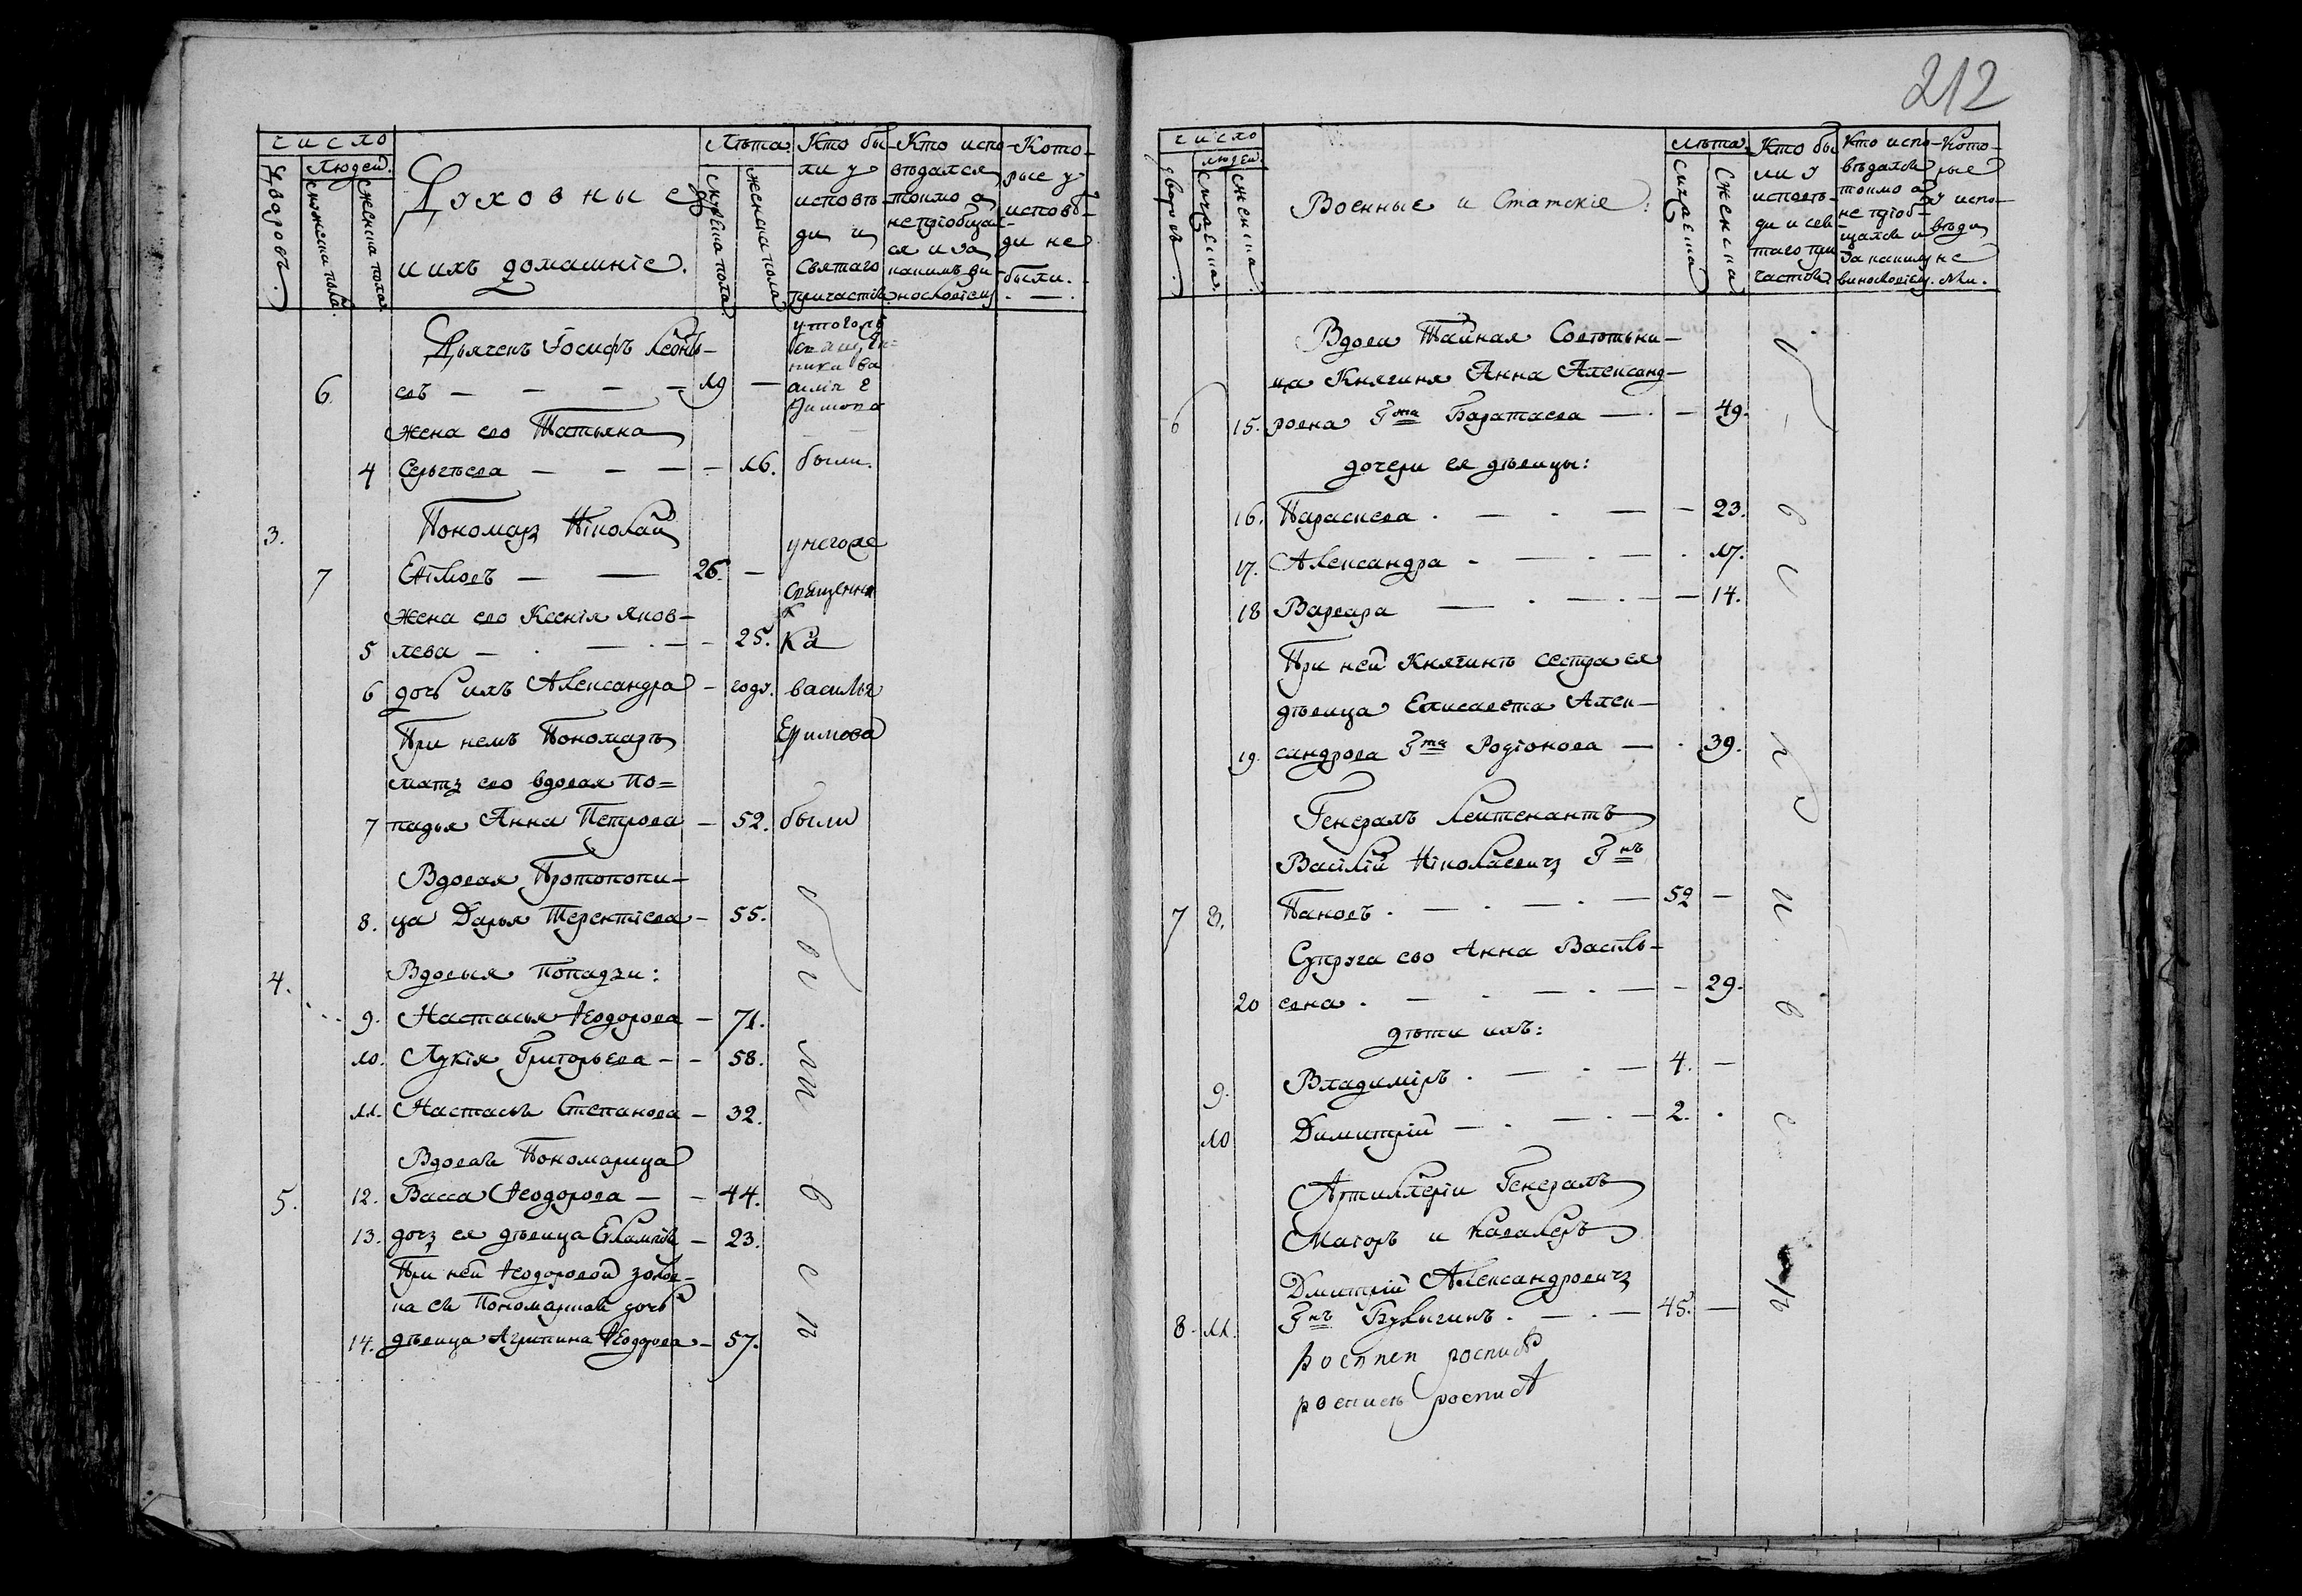 число
Дворовъ.
Людей.
мужеска пола.
женска пола
Духовные
и ихъ домашніе.
Лѣта.
мужеска пола
женска пола
Кто бы-
ли у
исповѣ-
ди и
святаго
причастія
Кто испо-
вѣдался
токмо а
не пріобщал-
ся и за
какимъ ви-
нословіемъ
Кото-
рые у
исповѣ-
ди не
были.
Дьяченъ Іосифъ Леонть-
6 евъ 19
жена его Татьяна
4 Сергѣева 16. были.
3. Пономарь Николай
7 Ефимовъ 26. у негоже
священни
жена его Ксенія Яков-
5 лева 25. ка
6 дочь ихъ Александра году. василья
При немъ Пономарѣ Ефимова
мать его вдовая по=
7 падья Анна Петрова 52. были
Вдовая Протопопи-
8. ца Дарья Терентіева 55.
4. Вдовыя попадьи:
9. Настасья Ѳеодорова 71.
10. Лукія Григорьева 58.
11. Настасья Степанова 32.
Вдовая Пономарица
5. 12. Васса Ѳеодорова 44.
13. дочь ея дѣвица Евлампія 23.
При ней Ѳеодоровой золов-
ка ея Пономарская дочь
14. дѣвица Агрипина Ѳеодорова 57.
212
число
дворовъ.
людей.
мужеска.
женска.
Военные и Статскіе:
лѣта.
мужеска
женска
Кто бы
ли у
исповѣ-
ди и свя-
таго при
частія
Кто испо-
вѣдался
токмо а
не пріоб-
щался и
за какимъ
винословіемъ.
Кото-
рые
у испо-
вѣди
не
были.
Вдова Тайная Совѣтни-
ца Княгиня Анна Александ-
6 15. ровна Гжа Баратаева 49.
дочери ея дѣвицы:
16. Параскева 23.
17. Александра 17.
18 Варвара 14.
При ней Княгинѣ сестра ея
дѣвица Елисавета Алек-
19. сандрова Гжа Родіонова 39.
Генералъ Лейтенантъ
Василій Николаевичь Гнъ
7 8. Пановъ 52
Супруга его Анна Василь-
20 евна 29.
дѣти ихъ:
9. Владиміръ 4.
10 Димитрій 2.
Артиллеріи Генералъ
Маіоръ и Кавалеръ
Дмитрій Александровичь
8. 11. Гнъ Булыгинъ 45.
роспись
роспись